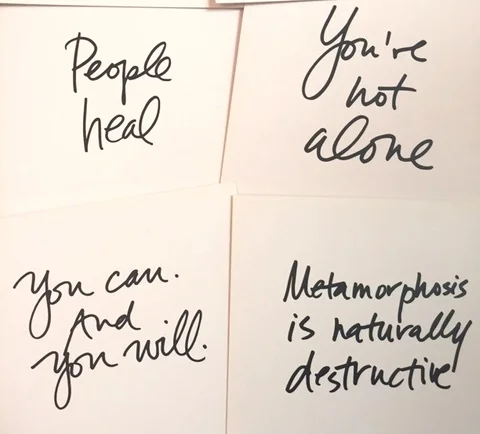 People
heal
You're
not
alone
You can.
And
you will.
Metamorphosis
is naturally
destructive